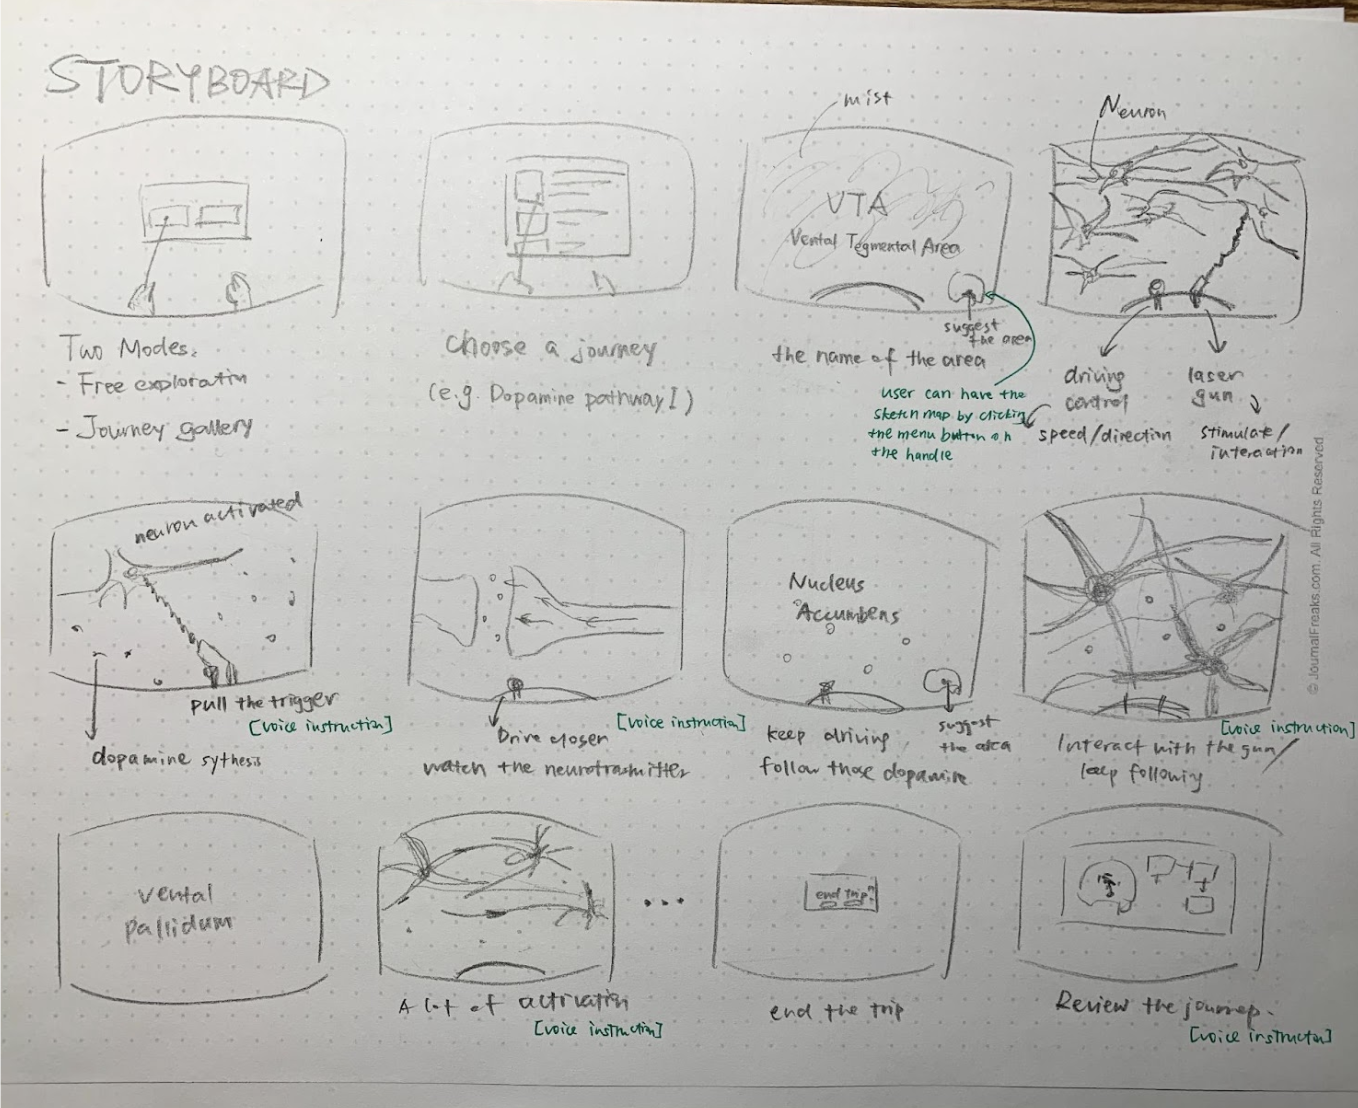 STORYBOARD
Two Modes:
- Free exploratin
- Journey gallery
choose a journey
(e.g. Dopamine pathway I)
mist
VTA
Vental Tegmental Area
suggest
the area
the name of the area
user can have the
sketch map by clicking
the menu button on
the handle
Neuron
driving
control
speed/direction
laser
gun
stimulate/
interaction
neuron activated
pull the trigger
[voice instruction]
dopamine sythesis
Drive closer
[voice instruction]
watch the neurotrasmitter
Nucleus
Accumbens
suggest
the area
keep driving,
follow those dopamine
[voice instruction]
Interact with the gun/
keep following
vental
pallidum
A lot of activatin
[voice instruction]
...
end trip?
end the trip
Review the journey.
[voice instructon]
© JournalFreaks.com. All Rights Reserved